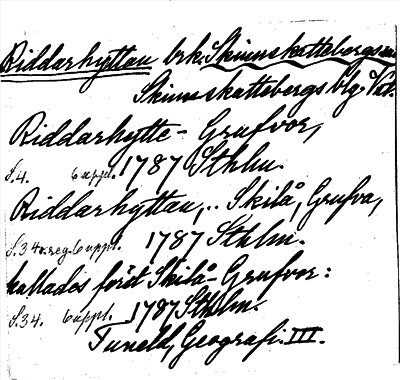 Riddarhyttan brk. Skinnskattebergs sn
Skinnskattebergs blg. Vstm.
Riddarhytte- Grufvor,
S. 4. 6 uppl. 1787 Sthlm.
Riddarhyttan, .. Skilå, Grufva,
S. 34 o. reg. 6 uppl. 1787 Sthlm.
kallades förSt Skilå- Grufvor:
S. 34. 6 uppl. 1787 Sthlm.
Tuneld, Geografi. III.